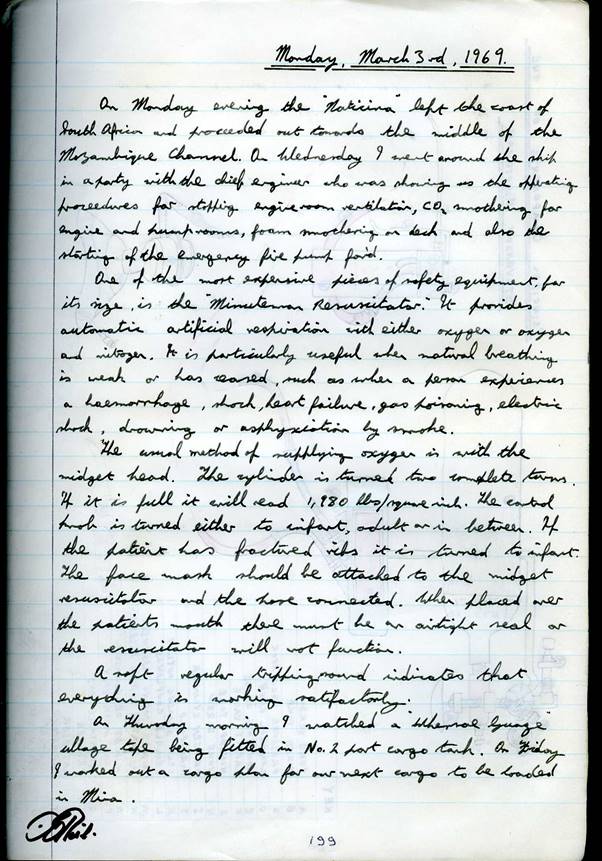 Monday, March 3rd, 1969.
On Monday evening the "Naticina" left the coast of
South Africa and proceeded out towards the middle of the
Mozambique Channel. On Wednesday I went around the ship
in a party with the chief engineer who was showing us the opperating
proceedures for stopping engine room ventilation, CO₂ smothering for
engine and pump rooms, foam smothering on deck and also the
starting of the emergency fire pump for'd.
One of the most expensive pieces of safety equipment, for
its size, is the "Minuteman Resuscitator". It provides
automatic artificial respiration with either oxygen or oxygen
and nitrogen. It is particularly useful when natural breathing
is weak or has ceased, such as when a person experiences
a haemorrhage, shock, heart failure, gas poisoning, electric
shock, drowning or asphyxiation by smoke.
The usual method of supplying oxygen is with the
midget head. The cylinder is turned two complete turns.
If it is full it will read 1,980 lbs/square inch. The control
knob is turned either to infant, adult or in between. If
the patient has fractured ribs it is turned to infant.
The face mask should be attached to the midget
resuscitator and the hose connected. When placed over
the patients mouth there must be an airtight seal or
the resuscitator will not function.
A soft regular tripping sound indicates that
everything is working satisfactorily.
On Thursday morning I watched a "Whessoe Guage"
ullage tape being fitted in No. 2 port cargo tank. On Friday
I worked out a cargo plan for our next cargo to be loaded
in Mina.
199